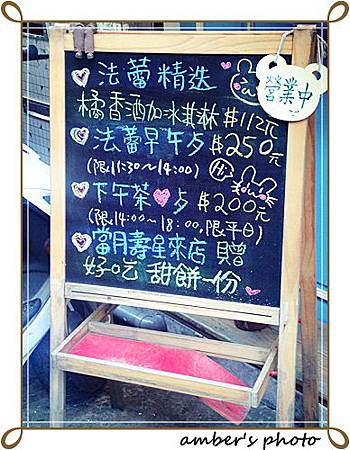 法蕾精選
營業中
橘香酒加冰淇淋 $112元
法蕾早午歺 $250元
(限11:30~14:00)
Hi
下午茶歺 $200元
(限14:00~18:00,限平日)
當月壽星來店贈
好吃 甜餅一份
amber's photo